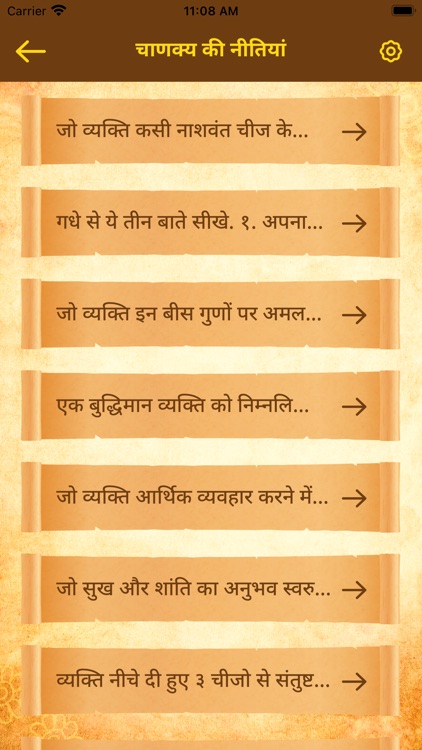 Carrier 11:08 AM
चाणक्य की नीतियां
जो व्यक्ति कसी नाशवंत चीज के...
गधे से ये तीन बाते सीखे. १. अपना...
जो व्यक्ति इन बीस गुणों पर अमल...
एक बुद्धिमान व्यक्ति को निम्नलि...
जो व्यक्ति आर्थिक व्यवहार करने में...
जो सुख और शांति का अनुभव स्वरु...
व्यक्ति नीचे दी हुए ३ चीजो से संतुष्ट...